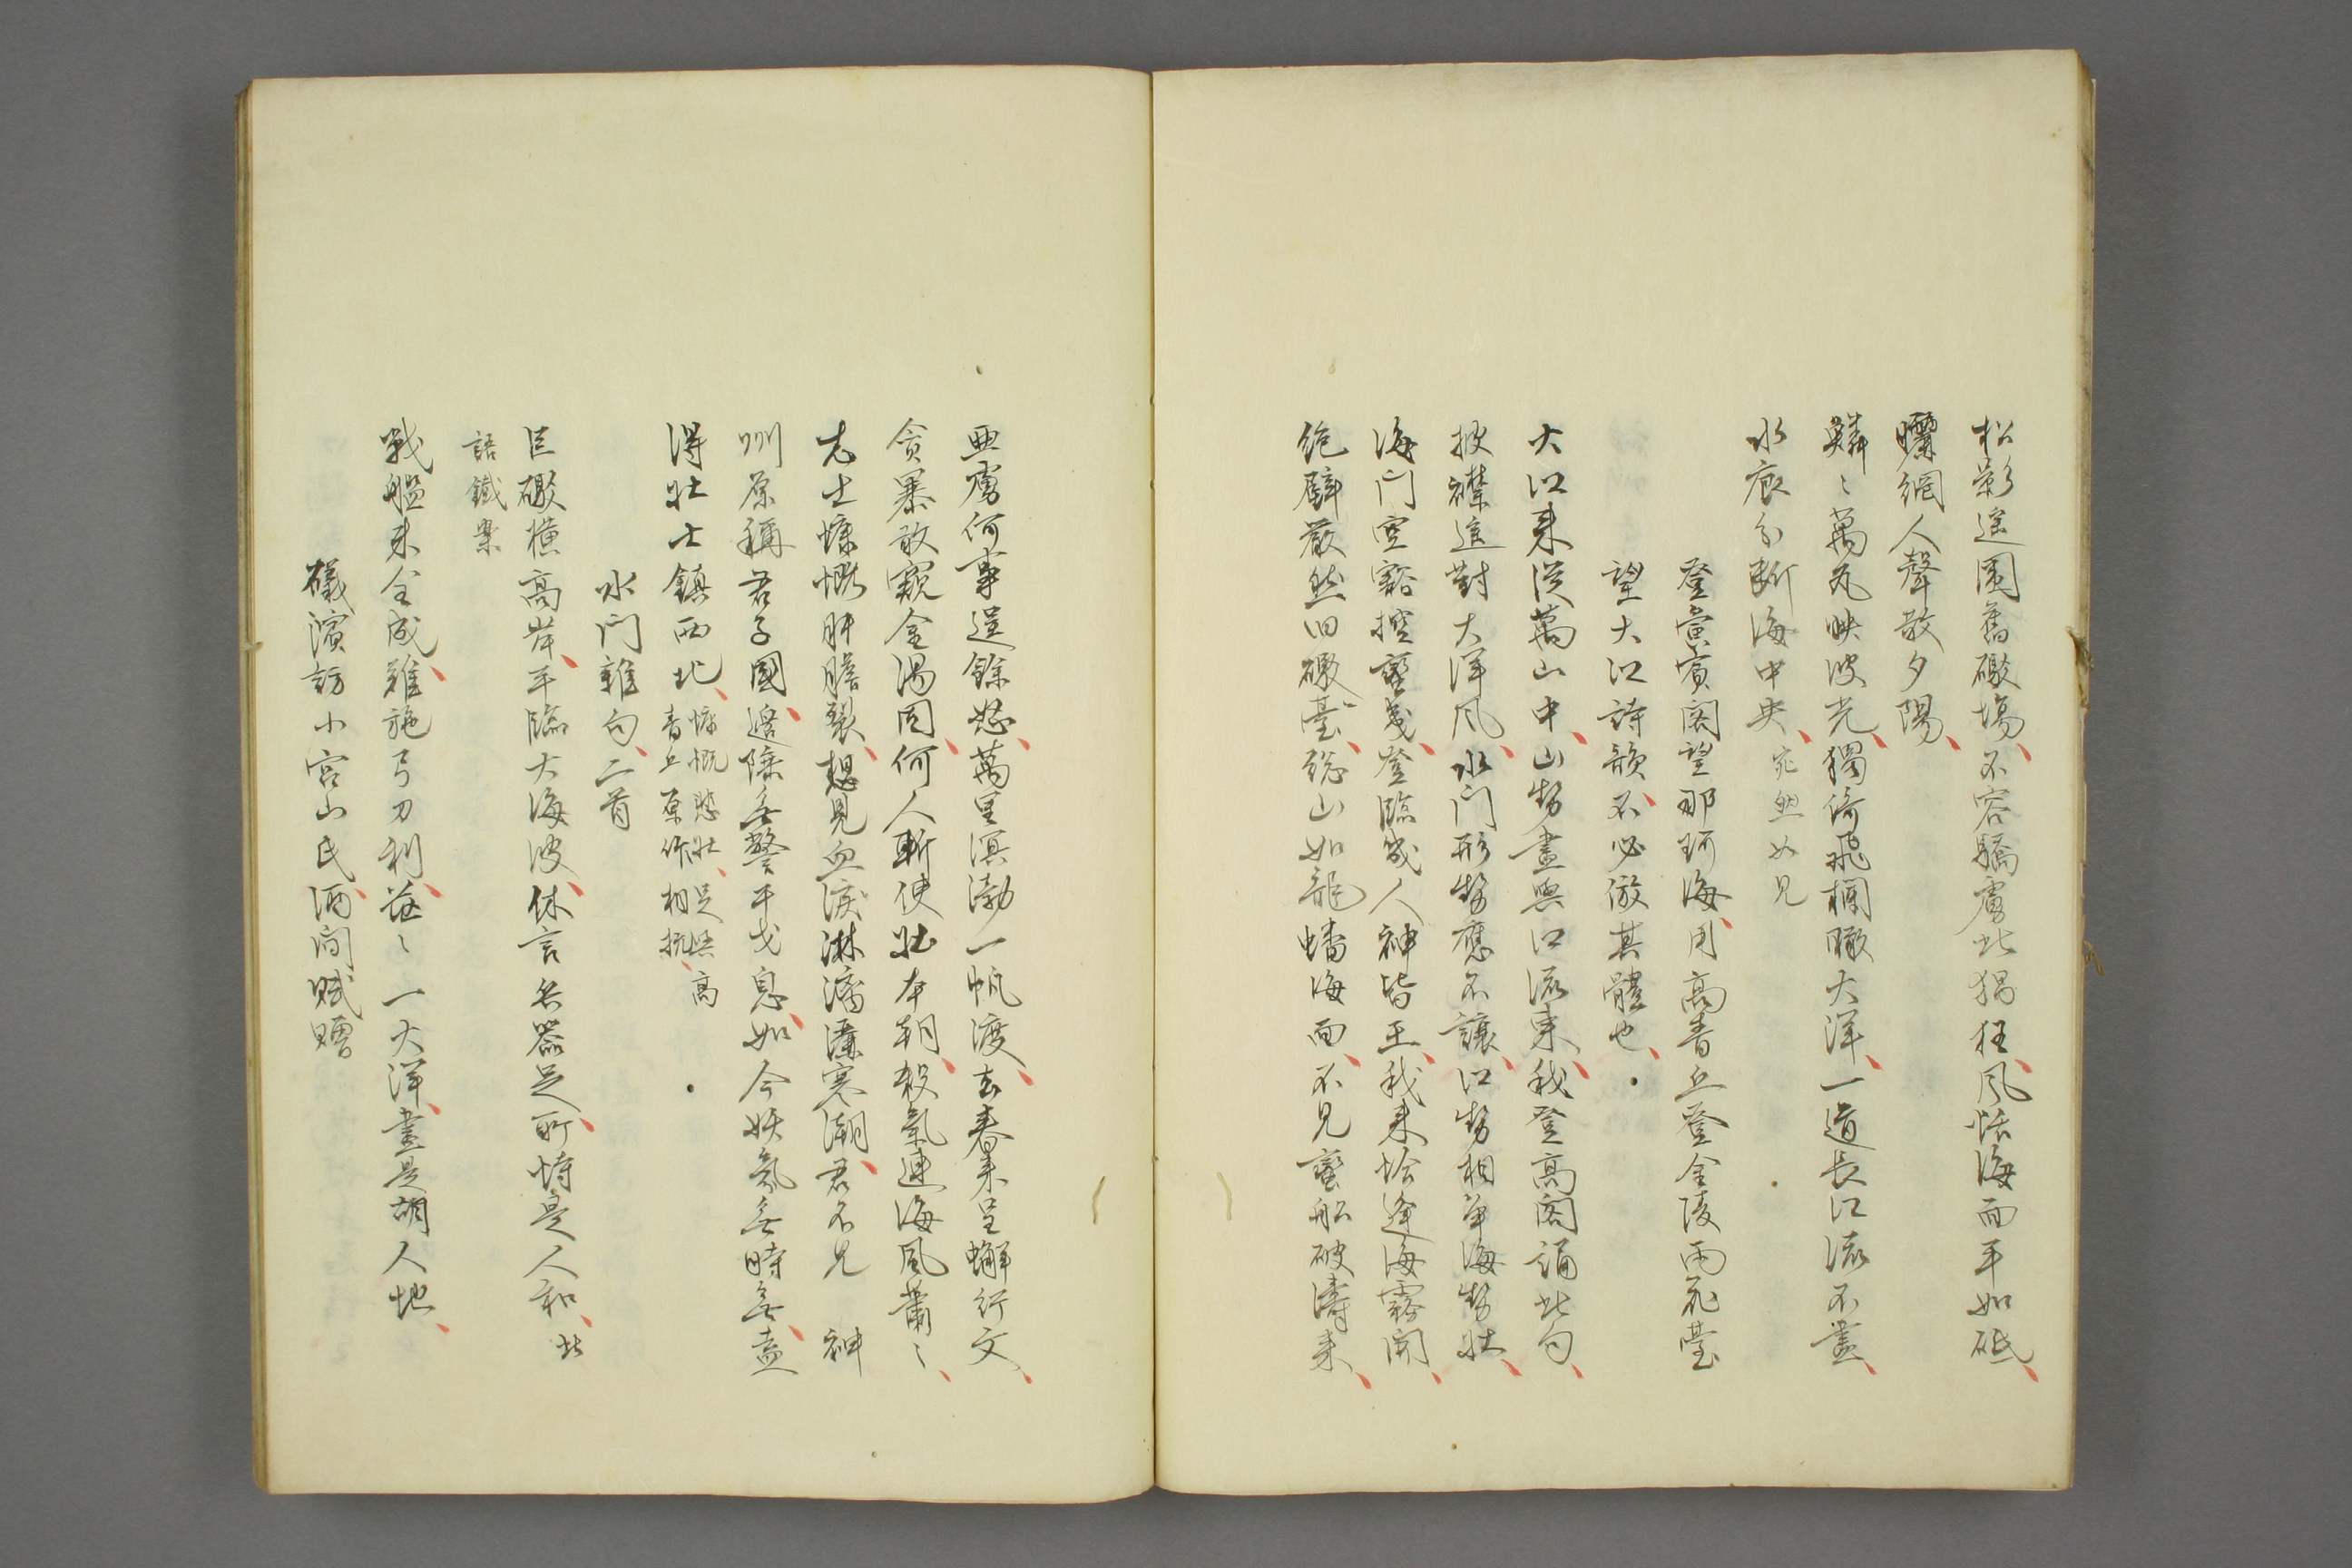 松影遥圍舊礮塲不容驕虜此猖狂風恬海面平如砥
曬網人聲散夕陽
鱗〻萬瓦映波光獨倚飛欄瞰大洋一道長江流不盡
水痕分斷海中央 宛然如見
登賓閣望那珂海用高青丘登金陵雨花臺
望大江詩韻不必倣其體也
大江来從萬山中山勢盡與江流東我登高閣誦此句
披襟遥對大洋風水門形勢應不讓江勢相爭海勢壮
海門空豁控蠻夷登臨幾人神皆王我来恰逢海霧開
絶壁嚴然旧礮臺総山如龍蟠海面不見蠻船破濤来
亜虜何事逞餘怒萬里溟渤一帆渡去春来呈蠏行文
貪暴敢窺金湯固何人斬使壮本朝殺氣連海風蕭〻
志士慷慨肝膽裂想見血涙淋漓濺寒潮君不見 神
州原稱君子國邊陲無警干戈息如今妖氛無時無盍
得壮士鎮西北 慷慨悲壮足與高
青丘原作相抗
水門雜句二首
巨礮横高岸平臨大海波休言兵器足所恃是人和 此
語鐵案
戰艦来全成難施弓刀利茫〻一大洋盡是胡人地
礒濱訪小宮山氏酒間賦贈